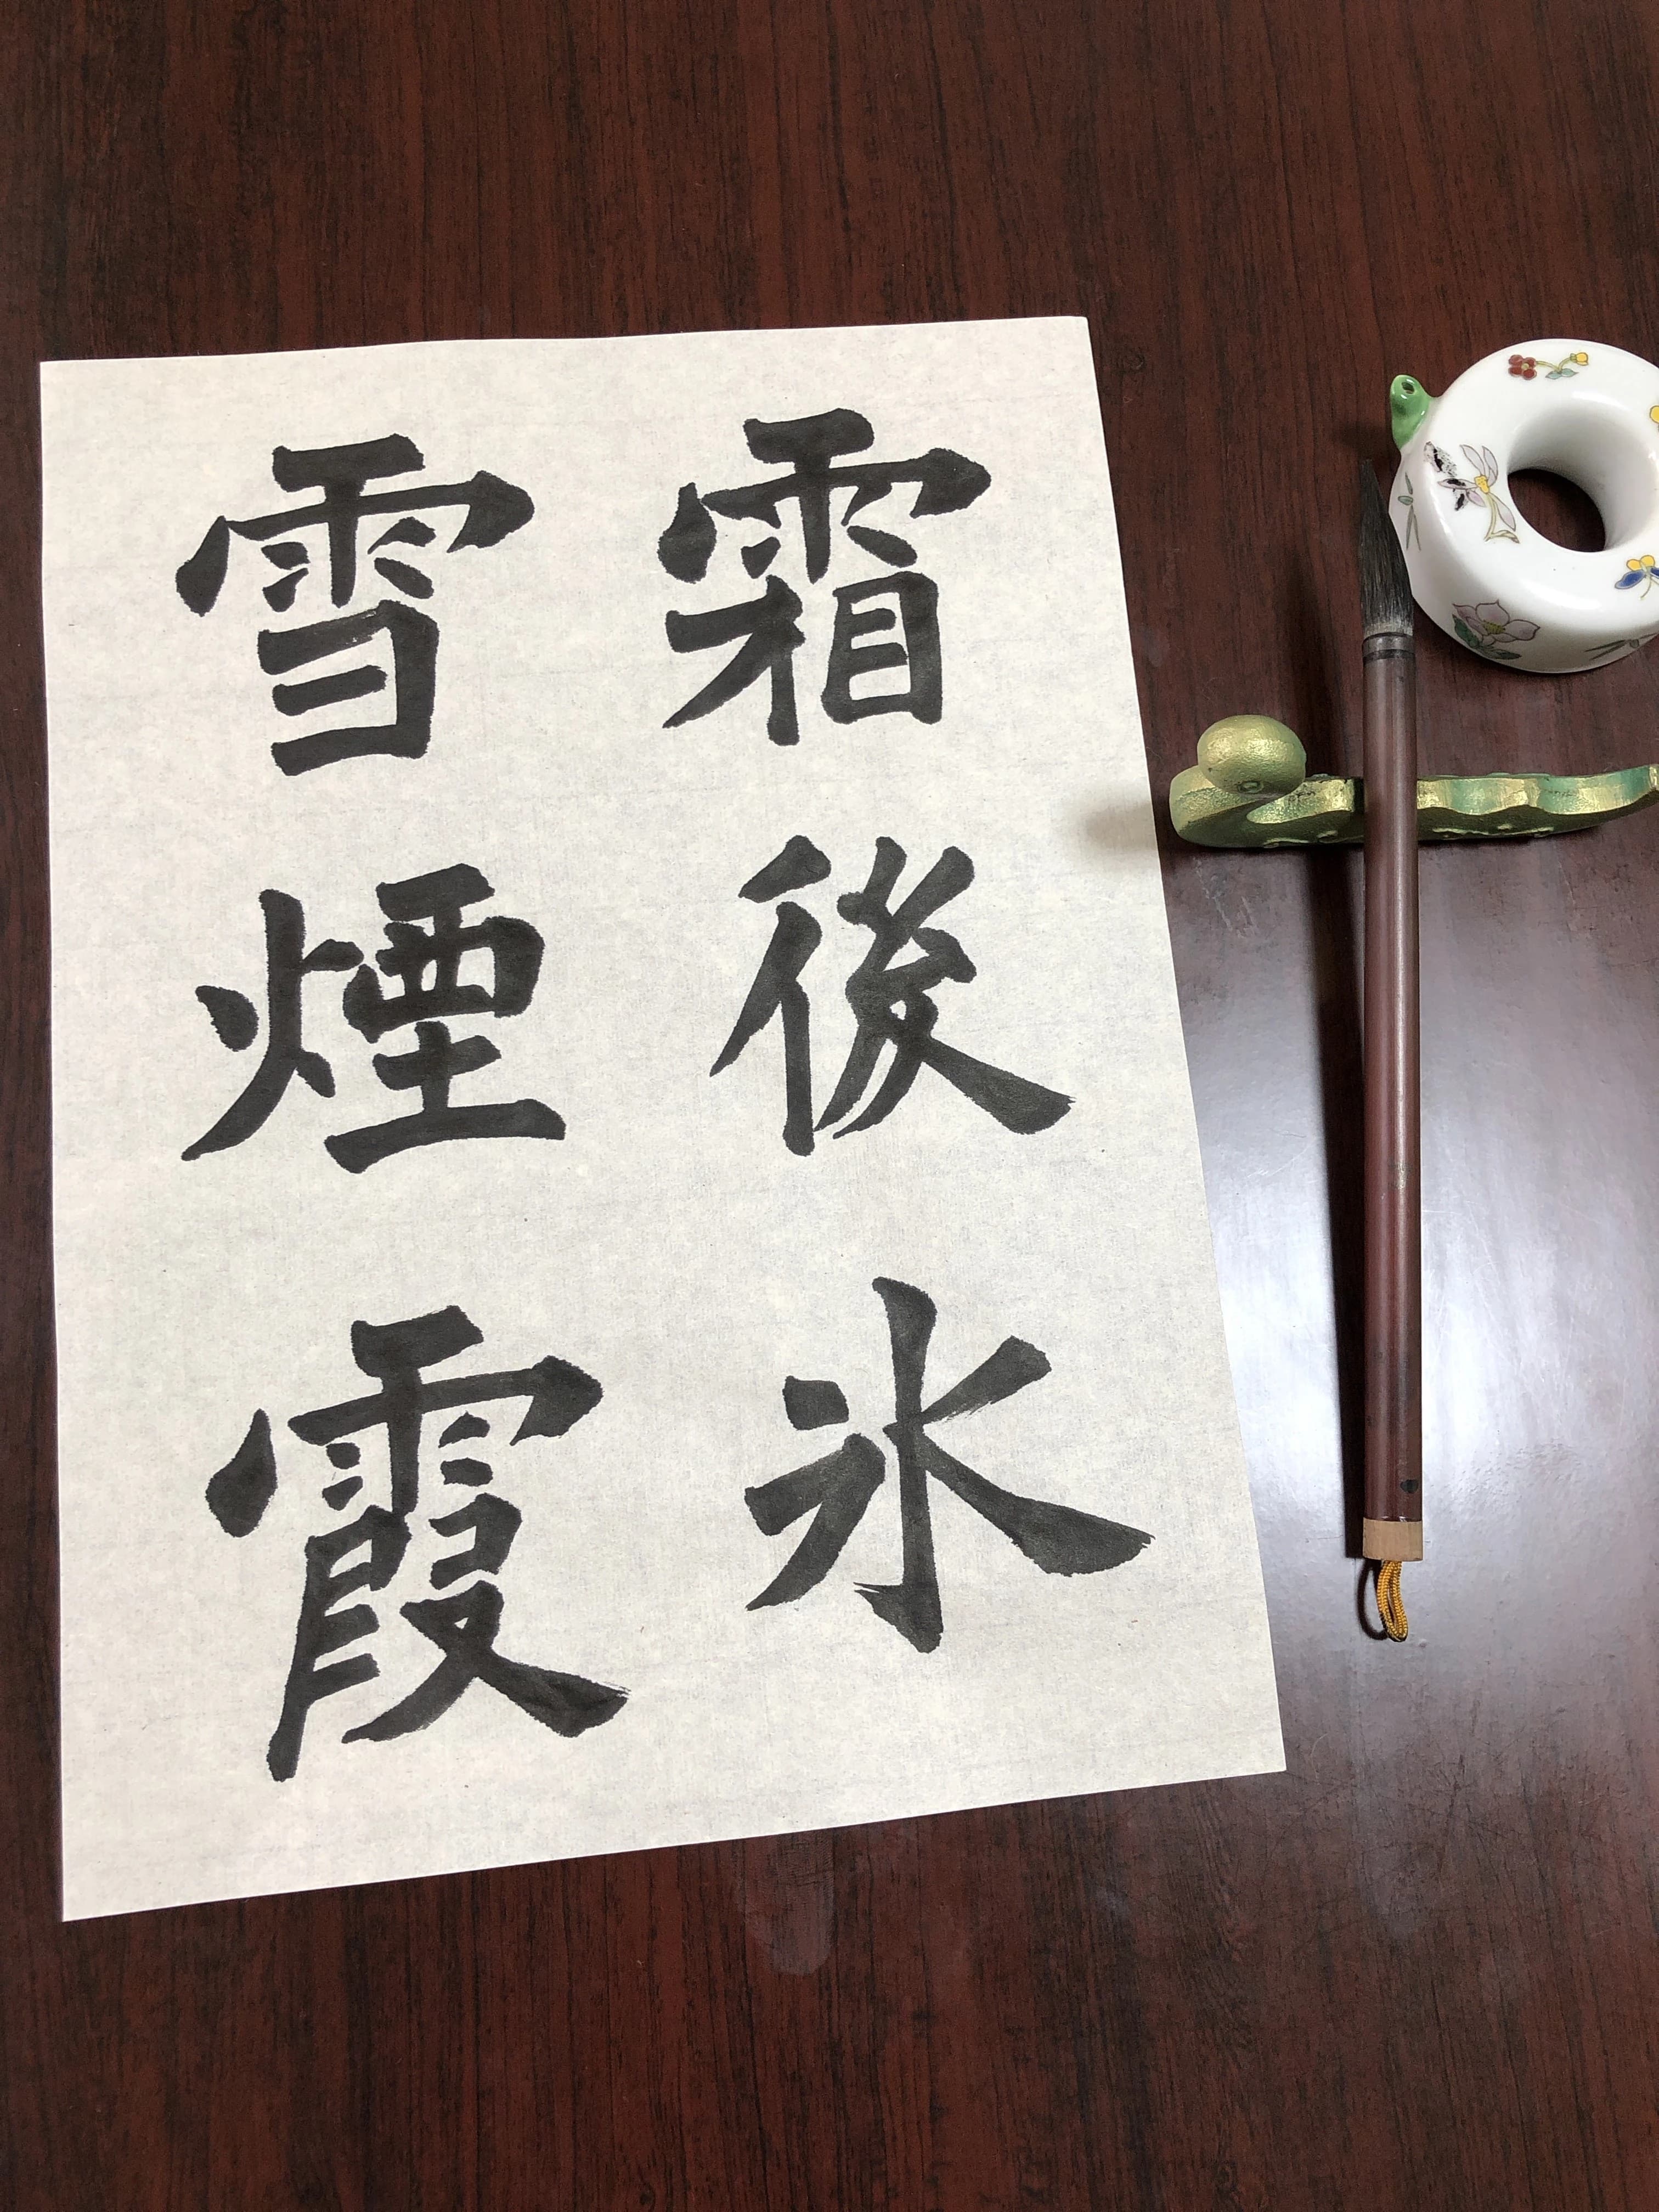 霜後氷
雪煙霞